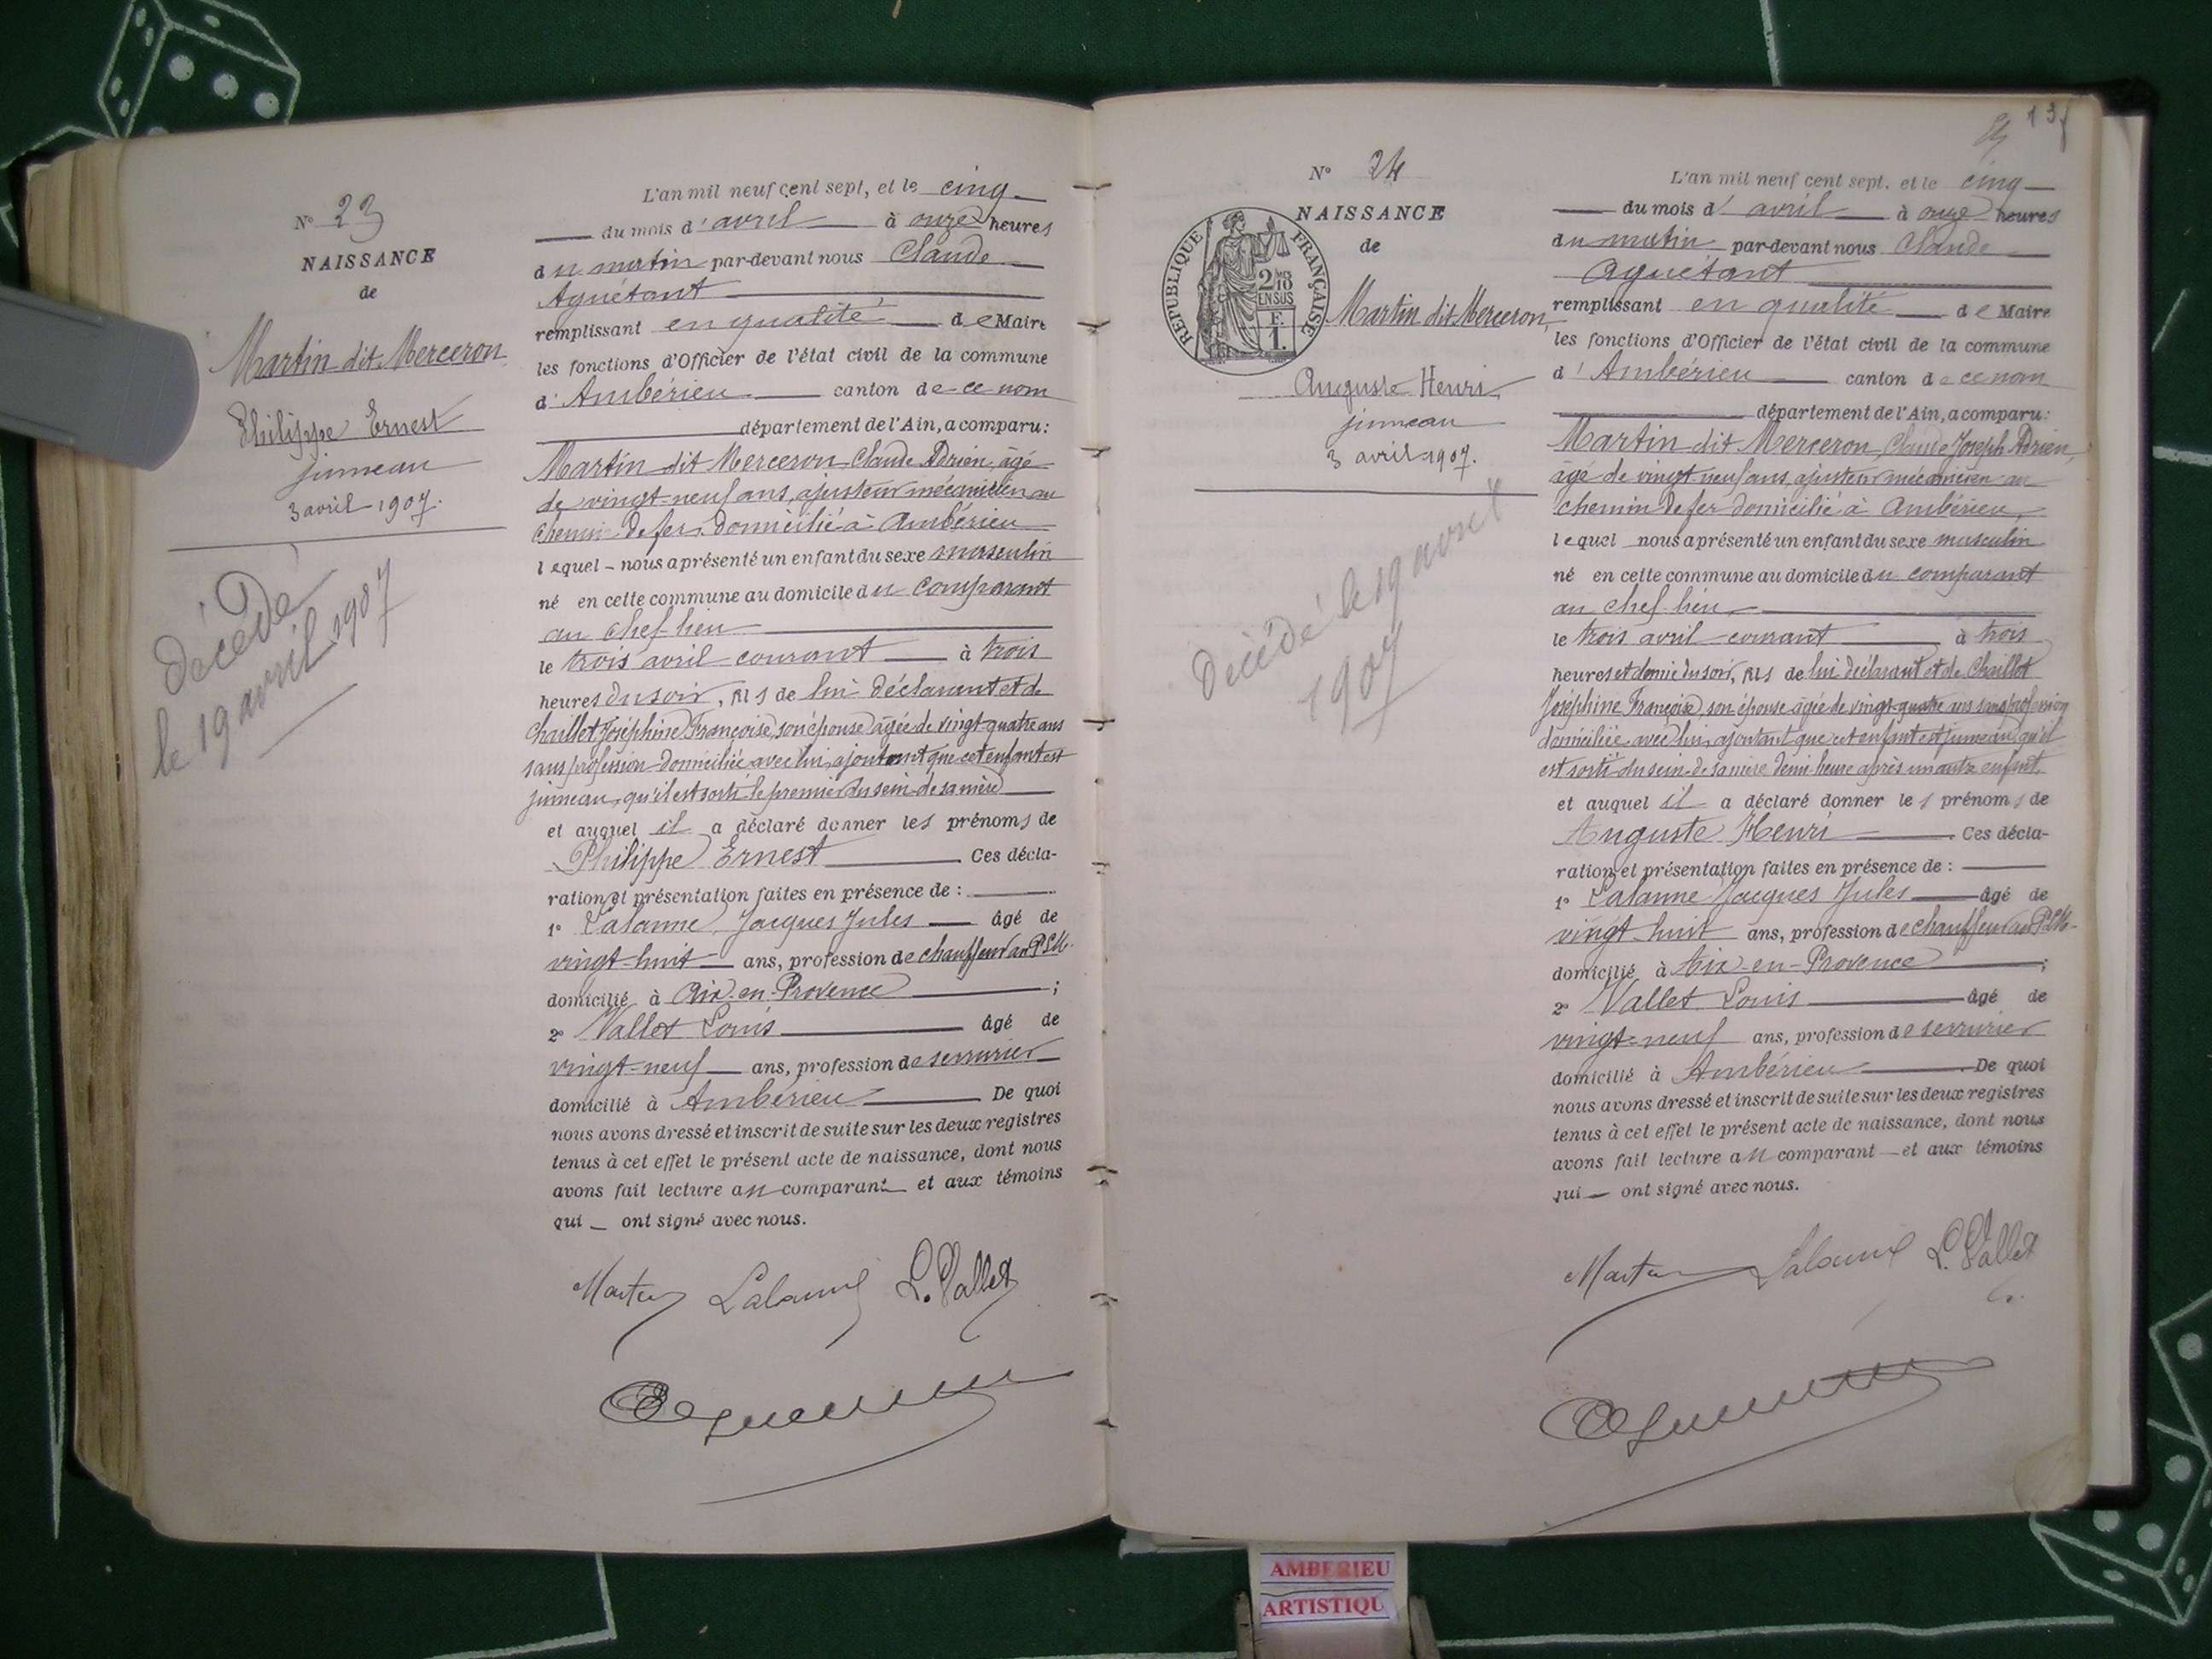 N° 23
NAISSANCE
de
Martin dit Merceron
Philippe Ernest
jumeau
3 avril 1907.
Décédé
le 19 avril 1907
L'an mil neuf cent sept, et le cinq
du mois d'avril à onze heures
du matin par-devant nous Claude
Aguétant
remplissant en qualité de Maire
les fonctions d'Officier de l'état civil de la commune
d'Ambérieu canton de ce nom
département de l'Ain, a comparu:
Martin dit Merceron Claude Adrien, âgé
de vingt-neuf ans, ajusteur mécanicien au
chemin de fer, domicilié à Ambérieu
lequel nous a présenté un enfant du sexe masculin
né en cette commune au domicile du comparant
au chef-lieu
le trois avril courant à trois
heures du soir, fils de lui déclarant et de
Chaillet Joséphine Françoise, son épouse âgée de vingt-quatre ans
sans profession domiciliée avec lui, ajoutant que cet enfant est
jumeau, qu'il est sorti le premier du sein de sa mère
et auquel il a déclaré donner les prénoms de
Philippe Ernest Ces décla-
ration et présentation faites en présence de :
1° Lalanne Jacques Jules âgé de
vingt-huit ans, profession de chauffeur au P.L.M.
domicilié à Aix-en-Provence ;
2° Vallet Louis âgé de
vingt-neuf ans, profession de serrurier
domicilié à Ambérieu De quoi
nous avons dressé et inscrit de suite sur les deux registres
tenus à cet effet le présent acte de naissance, dont nous
avons fait lecture au comparant et aux témoins
qui ont signé avec nous.
Martin Lalanne L. Vallet
N° 24
NAISSANCE
de
RÉPUBLIQUE FRANÇAISE
2/10
EN SUS
F.
1.
Martin dit Merceron
Auguste Henri
jumeau
3 avril 1907.
Décédé le 19 avril
1907
13
L'an mil neuf cent sept, et le cinq
du mois d'avril à onze heures
du matin par-devant nous Claude
Aguétant
remplissant en qualité de Maire
les fonctions d'Officier de l'état civil de la commune
d'Ambérieu canton de ce nom
département de l'Ain, a comparu:
Martin dit Merceron, Claude Joseph Adrien,
âgé de vingt-neuf ans, ajusteur mécanicien au
chemin de fer domicilié à Ambérieu,
lequel nous a présenté un enfant du sexe masculin
né en cette commune au domicile du comparant
au chef-lieu
le trois avril courant à trois
heures et demie du soir, fils de lui déclarant et de Chaillet
Joséphine Françoise, son épouse âgée de vingt-quatre ans sans profession
domiciliée avec lui, ajoutant que cet enfant est jumeau, qu'il
est sorti du sein de sa mère demi-heure après un autre enfant
et auquel il a déclaré donner les prénoms de
Auguste Henri Ces décla-
ration et présentation faites en présence de :
1° Lalanne Jacques Jules âgé de
vingt-huit ans, profession de chauffeur au P.L.M.
domicilié à Aix-en-Provence ;
2° Vallet Louis âgé de
vingt-neuf ans, profession de serrurier
domicilié à Ambérieu De quoi
nous avons dressé et inscrit de suite sur les deux registres
tenus à cet effet le présent acte de naissance, dont nous
avons fait lecture au comparant et aux témoins
qui ont signé avec nous.
Martin Lalanne L. Vallet
AMBERIEU
ARTISTIQU